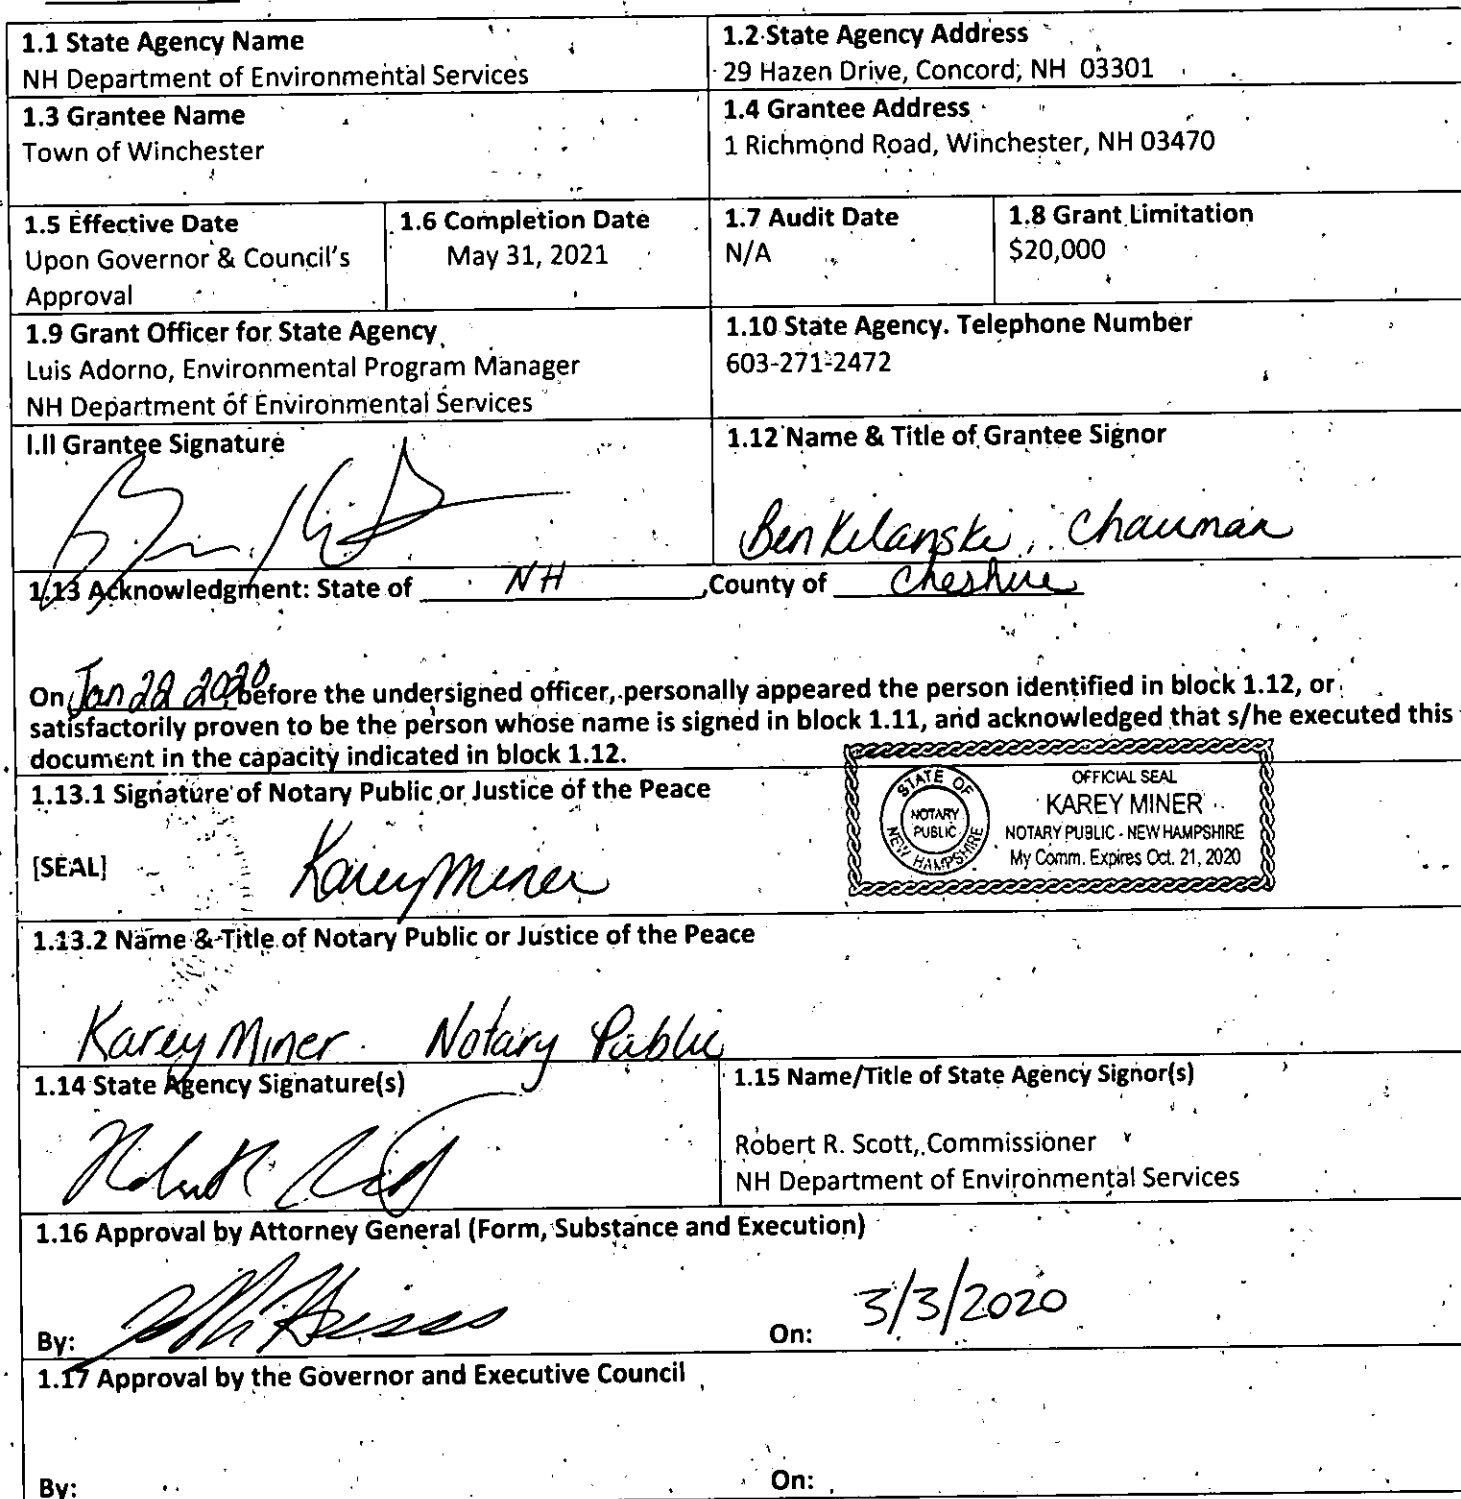 1.1 State Agency Name
NH Department of Environmental Services
1.2 State Agency Address
29 Hazen Drive, Concord, NH 03301
1.3 Grantee Name
Town of Winchester
1.4 Grantee Address
1 Richmond Road, Winchester, NH 03470
1.5 Effective Date
Upon Governor & Council's
Approval
1.6 Completion Date
May 31, 2021
1.7 Audit Date
N/A
1.8 Grant Limitation
$20,000
1.9 Grant Officer for State Agency
Luis Adorno, Environmental Program Manager
NH Department of Environmental Services
1.10 State Agency. Telephone Number
603-271-2472
I.II Grantee Signature
1.12 Name & Title of Grantee Signor
Ben Kilanski, Chairman
1.13 Acknowledgment: State of NH ,County of Cheshire
On Jan 22 2020 before the undersigned officer, personally appeared the person identified in block 1.12, or
satisfactorily proven to be the person whose name is signed in block 1.11, and acknowledged that s/he executed this
document in the capacity indicated in block 1.12.
1.13.1 Signature of Notary Public or Justice of the Peace
[SEAL]
Karey Miner
STATE OF NEW HAMPSHIRE
NOTARY
PUBLIC
OFFICIAL SEAL
KAREY MINER
NOTARY PUBLIC - NEW HAMPSHIRE
My Comm. Expires Oct. 21, 2020
1.13.2 Name & Title of Notary Public or Justice of the Peace
Karey Miner Notary Public
1.14 State Agency Signature(s)
1.15 Name/Title of State Agency Signor(s)
Robert R. Scott, Commissioner
NH Department of Environmental Services
1.16 Approval by Attorney General (Form, Substance and Execution)
By:
On: 3/3/2020
1.17 Approval by the Governor and Executive Council
By:
On: